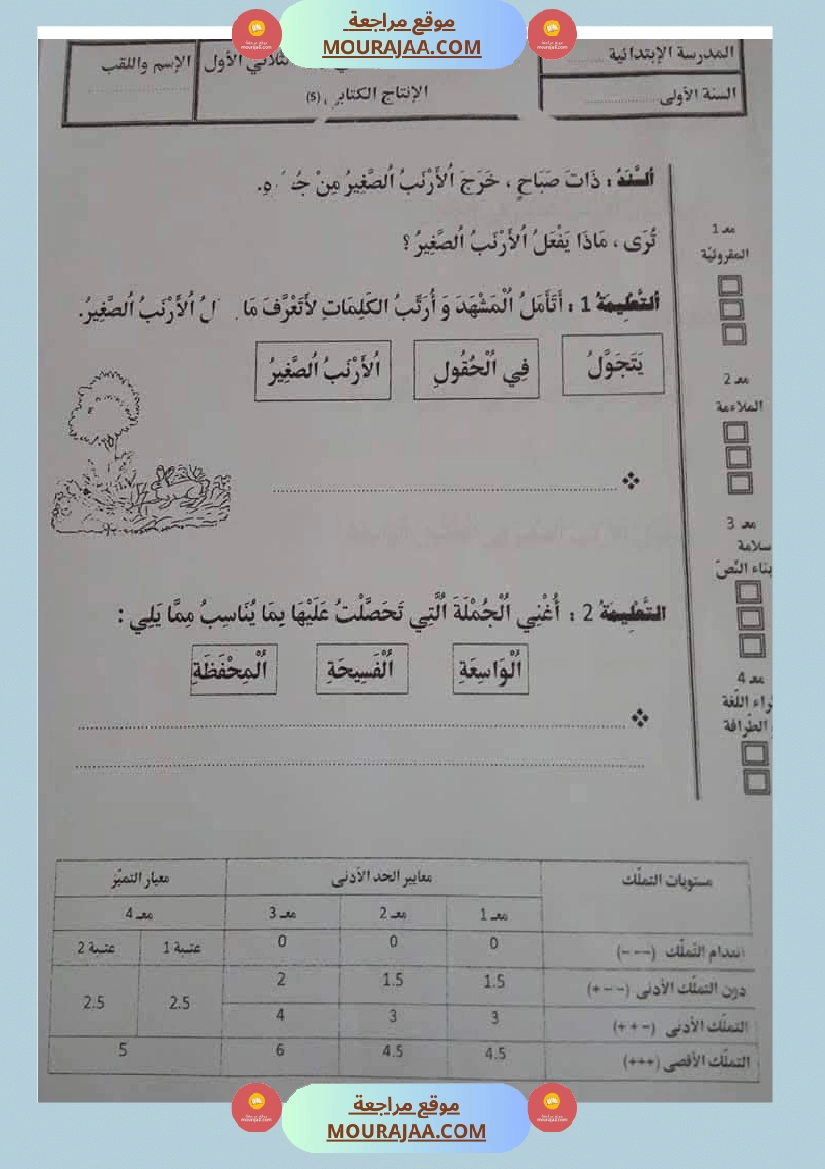 موقع مراجعة
MOURAJAA.COM
المدرسة الإبتدائية ............
السنة الأولى ....................
الثلاثي الأول
الإنتاج الكتابي (5)
الإسم واللقب
........................
السَّنَدُ : ذَاتَ صَبَاحٍ ، خَرَجَ اُلأَرْنَبُ اُلصَّغِيرُ مِنْ
تُرَى ، مَاذَا يَفْعَلُ اُلأَرْنَبُ اُلصَّغِيرُ ؟
التَّعْلِيمَةُ 1 : أَتَأَمَّلُ اُلْمَشْهَدَ وَ أُرَتِّبُ الكَلِمَاتِ لأَتَعَرَّفَ مَا اُلأَرْنَبُ اُلصَّغِيرُ.
يَتَجَوَّلُ
فِي اُلْحُقُولِ
اُلأَرْنَبُ اُلصَّغِيرُ
❖ ................................................
التَّعْلِيمَةُ 2 : أُغْنِي اُلْجُمْلَةَ اُلَّتِي تَحَصَّلْتُ عَلَيْهَا بِمَا يُنَاسِبُ مِمَّا يَلِي :
اُلْوَاسِعَةِ
اُلْفَسِيحَةِ
اُلْمِحْفَظَةِ
❖ ................................................
................................................
معـ 1
المقروئيّة
معـ 2
الملاءمة
معـ 3
سلامة
بناء النّصّ
معـ 4
اللّغة
الطّرافة
مستويات التملّك
معايير الحد الأدنى
معيار التميّز
معـ 1 معـ 2 معـ 3 معـ 4
انعدام التّملّك (- - -) 0 0 0 عتبة 1 عتبة 2
دون التملّك الأدنى (+ - -) 1.5 1.5 2 2.5 2.5
التملّك الأدنى (+ + -) 3 3 4
التملّك الأقصى (+++) 4.5 4.5 6 5
موقع مراجعة
MOURAJAA.COM